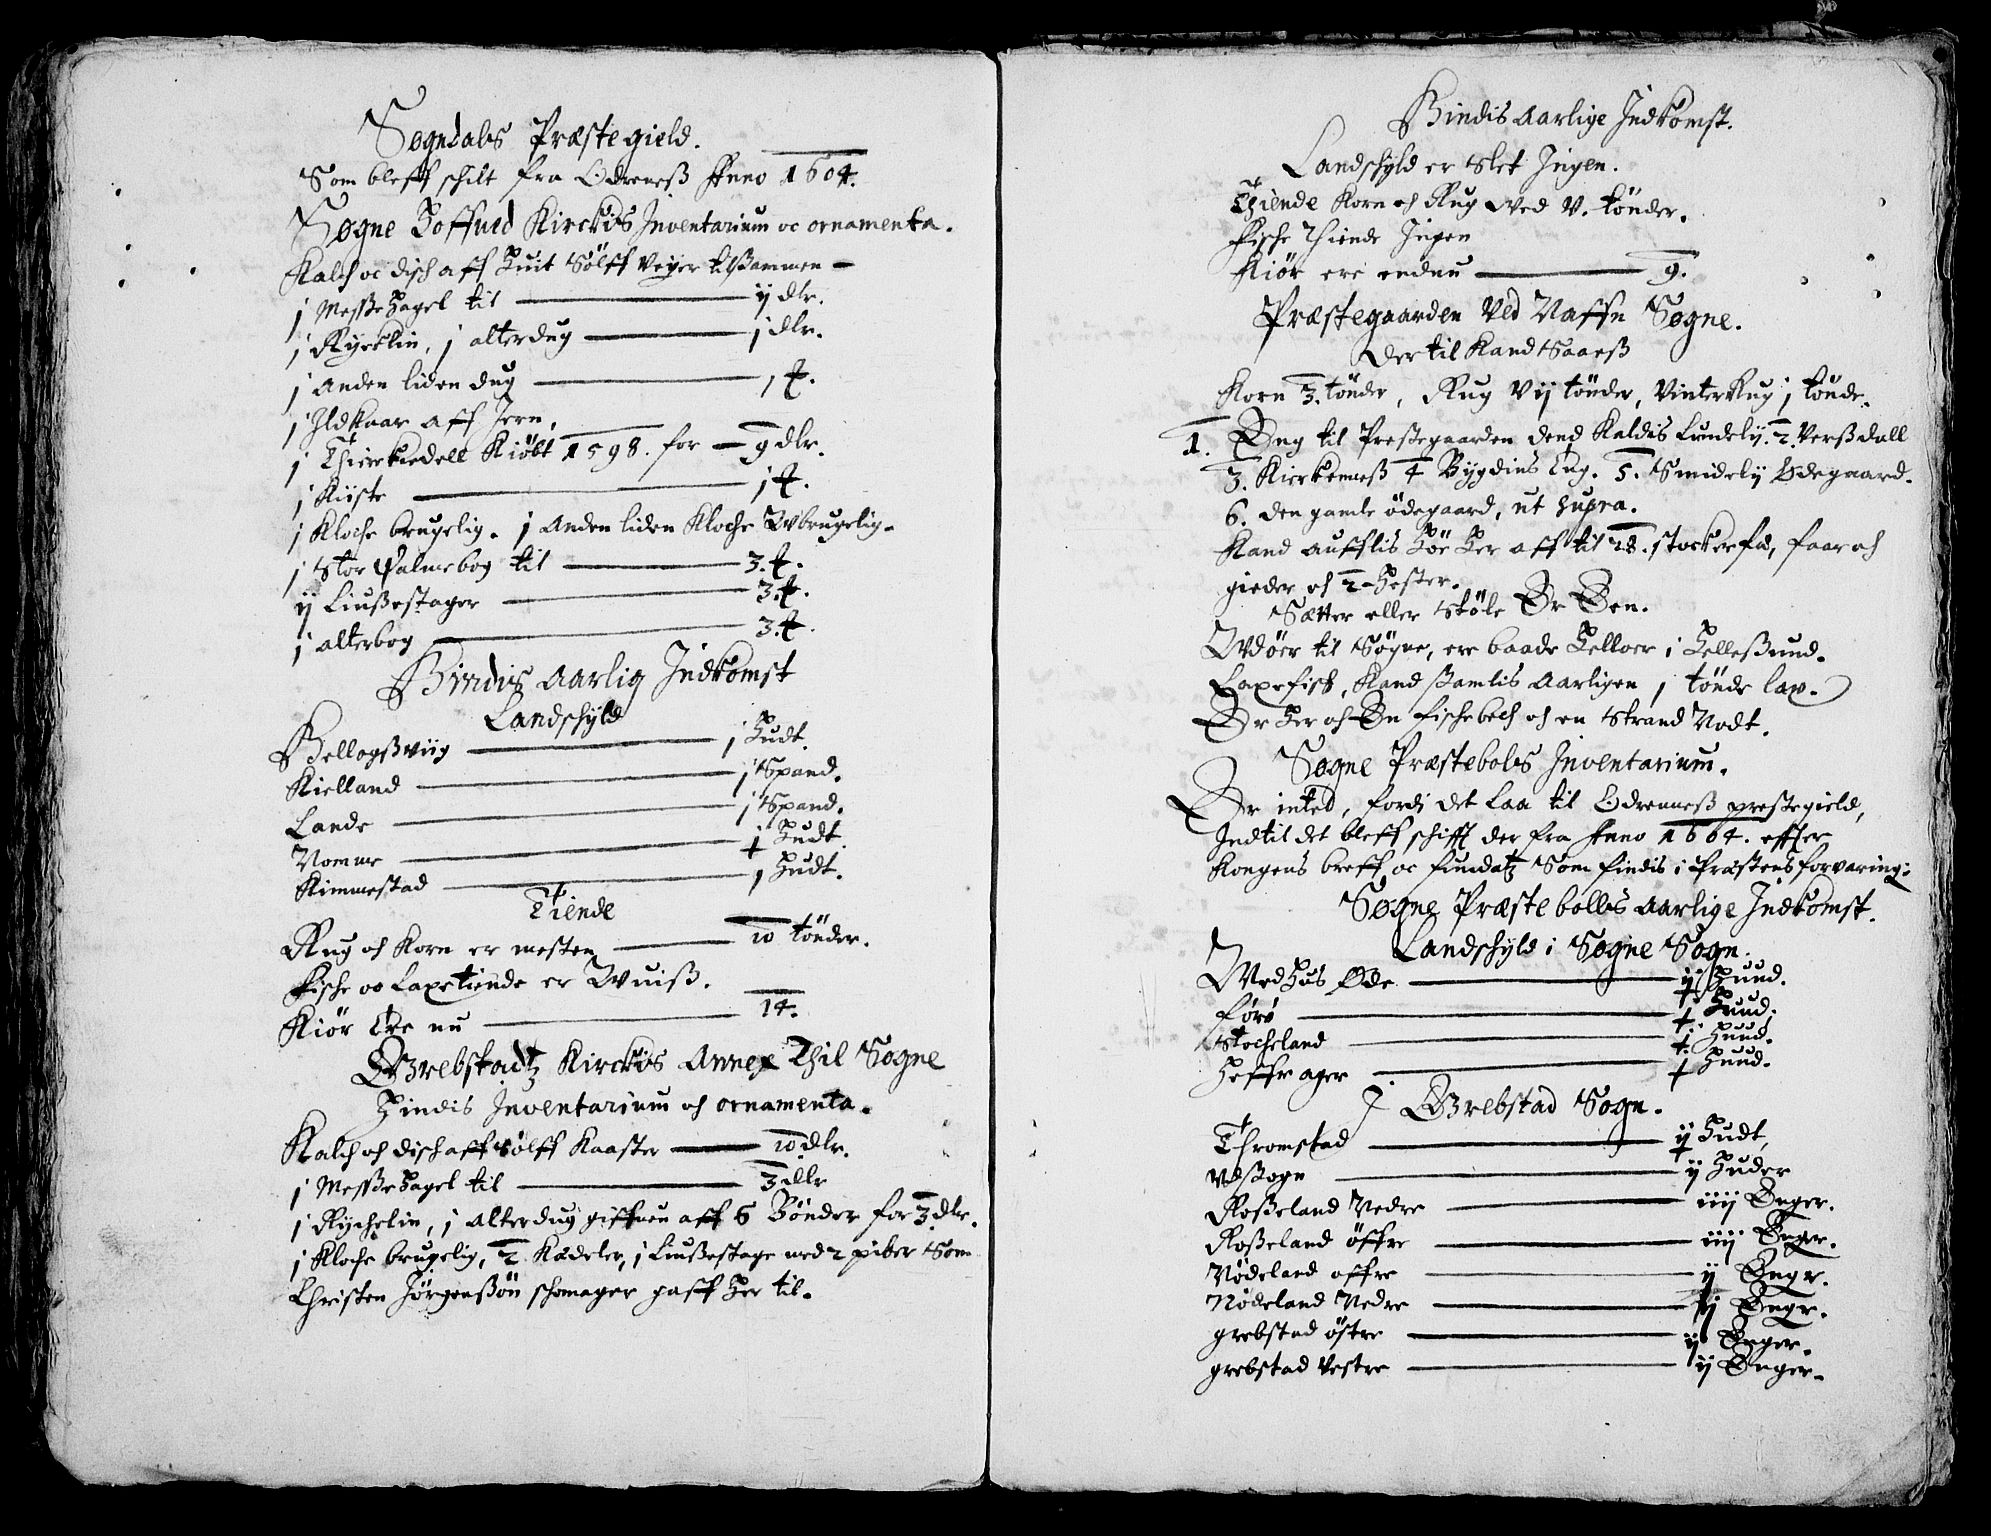 Søgndals Præstegield.
Som bleff schilt fra Odrenes Anno 1604.
Søgne Hoffuid Kirckis Inventarium oc ornamenta.
Kalch oc disch aff Huit Sølff veyer tilsammen —
j Messehagel til — ij dlr.
j Rycklin, j alterdug — j dlr.
j Anden liden dug — j ₰.
j Ildkaar aff Jern.
j Thierkiedell Kiøbt 1598. for — 9 dlr.
j Kiiste — j ₰.
j Kloche brugelig. j Anden liden Kloche Wbrugelig.
j Stor Psalmebog til — 3. ₰.
ij Liusestager — 3. ₰.
j alterbog — 3. ₰.
Hindis Aarlig Indkomst
Landschyld
Hellogßviig — j Hudt.
Kielland — j Spand.
Lande — j Spand.
Nomme — j Hudt.
Kimmestad — j Hudt.
Tiende
Rug och Korn er mesten — 10 tönder.
Fische oc Laxetiende er Wuiß.
Kiör Ere nu — 14.
Grebstadtz Kirckis Annex Thil Sogne
Hindis Inventarium och ornamenta.
Kalch och disch aff Sølff Kaaster — 10 dlr.
j Messehagel til — 3 dlr
j Rychelin, j Alterdug giffuen aff 6 Bönder for 3. dlr.
j Kloche brugelig, 2 Kedeler, j Liusestage med 2 piber Som
Christen Jörgensßön schomager gaff Her til.
Hindis Aarlige Indkomst.
Landschyld er Slet Ingen.
Thiende Korn och Rug Ved V. tönder.
Fische Thiende Ingen
Kiör ere endnu — 9.
Præstegaarden Ved Naffn Søgne.
Der til Kand Saaeß
Korn 3. tönder, Rug Vij tönder, VinterRug j tönde.
1. Eng til Prestegaarden dend Kaldis Lundely. 2. Verßdall
3. Kierkenneß 4 Bygdins Eng. 5. Smidely Ödegaard.
6. den gamle ödegaard, ut supra.
Kand aufflis Hör Her aff til 28. stocker fæ, faar och
gieder och 2 Hester.
Sætter eller Støle Er Een.
Wdöer til Søgne, ere baade Helloer i Helleßund.
Laxefisk, Kand samlis Aarligen j tönde lax.
Er Her och En fischebech och en Strand Nodt.
Søgne Præstebols Inventarium.
Er inted, fordi det laa til Odrenneß prestegield,
Indtil det bleff schifft der fra Anno 1604. effter
Kongens breff oc fundatz Som findis i Præstens forvaring:
Søgne Præstebolls Aarlige Indkomst.
Landschyld i Søgne Sogn.
Wedhus Øde — ij Huud.
Förö — j Huud.
Stocheland — j Huud.
Heffrager — j Huud.
I Grebstad Sogn.
Thromstad — ij Hudt,
Vdsogn — ij Huder
Roßeland Nedre — iiij Enger.
Roßeland öffre — iiij Enger.
Nödeland öffre — ij Engr.
Nödeland Nedre — ij Engr.
grebstad östre — ij Enger.
grebstad Vestre — ij Enger.